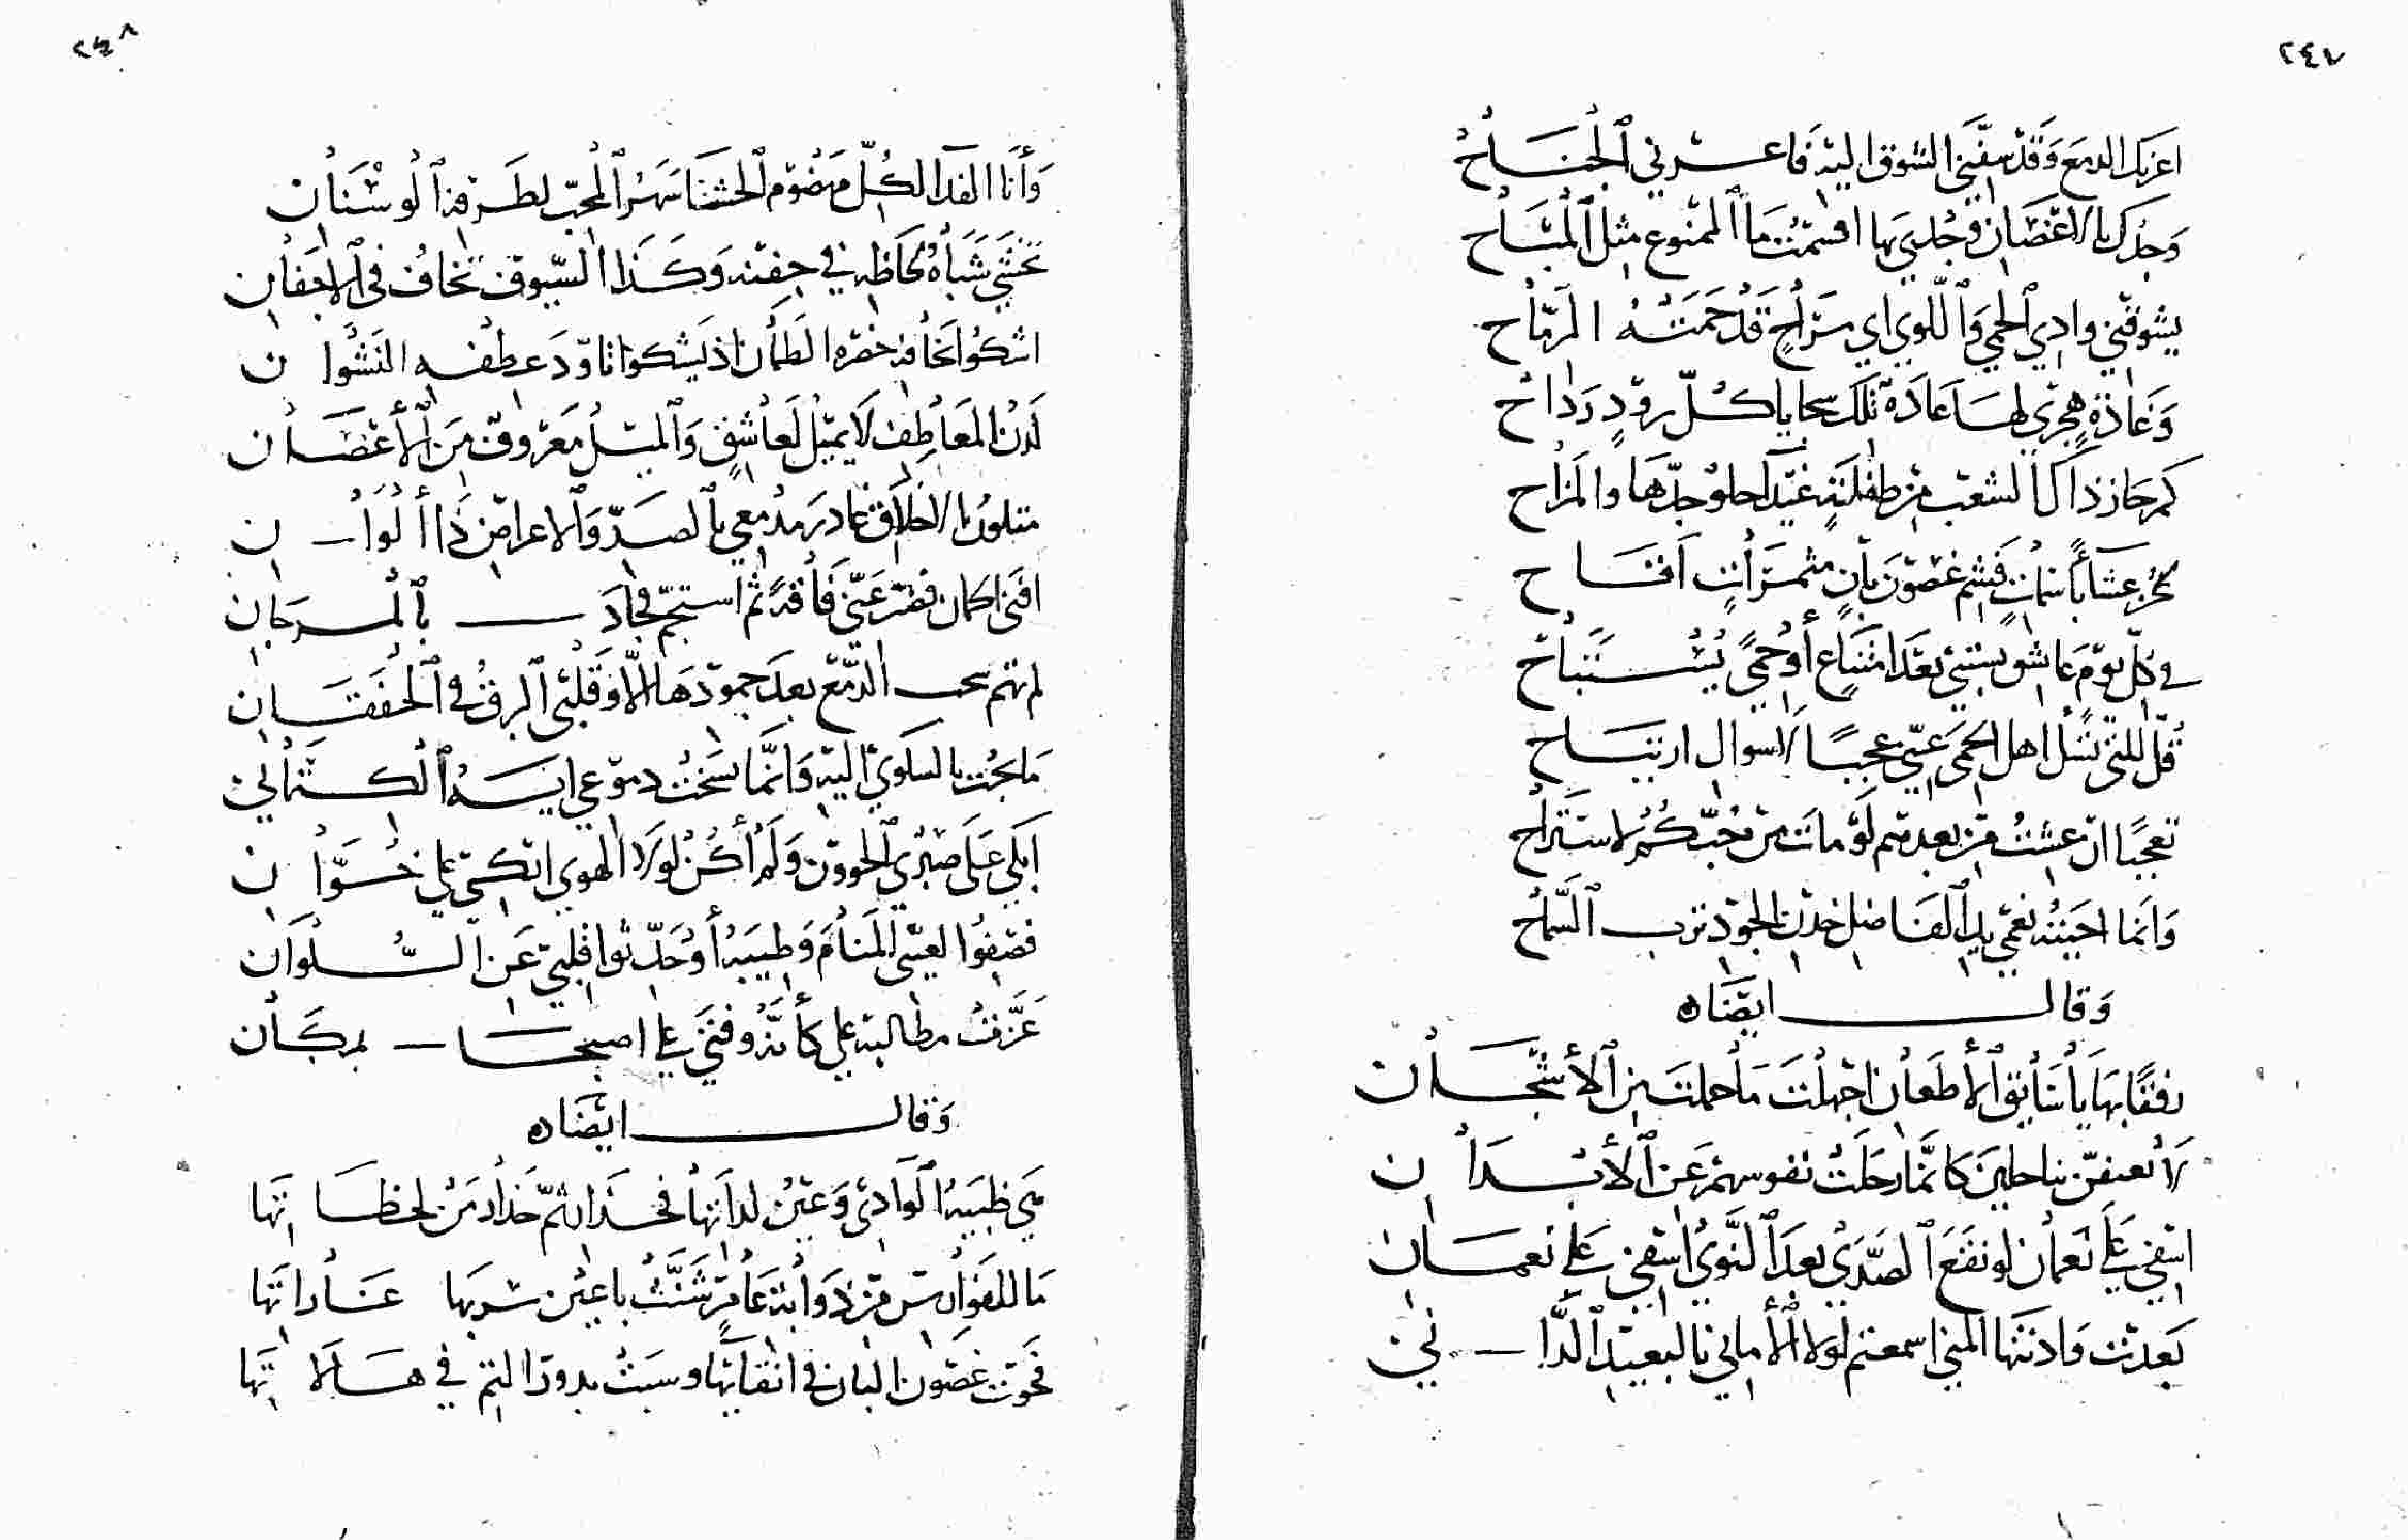 ٢٤٧
اعرتك الدمع وقد سفني الشوق اليه فاعرني الجناح
وجد كبالاغصان وجدي بها اقسمت ما الممنوع مثل المباح
يشوقني وادي الحمي واللوي اي مراح قد حمته الرماح
وغادة هجري لها عادة تلك سجايا كل رود رداح
كم حاز ذاك الشعب من طفلة غيدا حلو جدها والمزاح
باسمات فشم غصون بان مثمرات اقاح
في كل يوم عاشق يبتني بعد امتناع او حمي يستباح
قل للتي تسل اهل الحمي عني عجبا لا سوال ارتياح
تعجبا ان عشت من بعدهم لو مات من حبكم لاستراح
وانما احيته نعمي يد الفاضل خدن الجود ترب السماح
وقال ايضاه
رفقا بها يا سايق الاظعان اجهلت ما حملت من الاشجان
لا تعنفن بناحلين كانما رحلت نفوسهم عن الابدان
اسفي علي نعمان لو نفع الصدي بعد النوي اسفي علي نعمان
بعدت وادنتها المني اسمعتم لولا الاماني بالبعيد الداني
٢٤٨
وانا الفدا لكل مهضوم الحشا سهر المحب لطرفه الوسنان
تخشي شباه لحاظه في جفنه وكذا السيوف تخاف في الاجفان
اشكو اخافه خصره الظمان اذ يشكو تاود عطفه النشوان
لدن المعاطف لا يميل لعاشق والميل معروف من الاغصان
متلون بالاخلاق غادر مدمعي بالصد والاعراض ذا الوان
افني اكمان فقر عني فاقد ثم استجم فجاد بالمرجان
لم تهم سحب الدمع بعد جمودها الا وقلبي البرق في الخفقان
ما بحت بالسلوي اليه وانما نسخت دموعي اية الكتمان
ابكي علي صبري الخوون ولم اكن لولا الهوي ابكي علي خوان
فصفوا لعيني المنام وطيبه او حدثوا قلبي عن السلوان
عزت مطالبه علي كانه وفتي علي اصبحا بمكان
وقال ايضاه
هي ظبية الوادي وعين لداتها فحذار ثم حذار من لحظاتها
ما للفوارس من ذوابة عامر شنت باعين سربها غاراتها
فحوت غصون البان في انقايها وسبت بدور التم في هالاتها